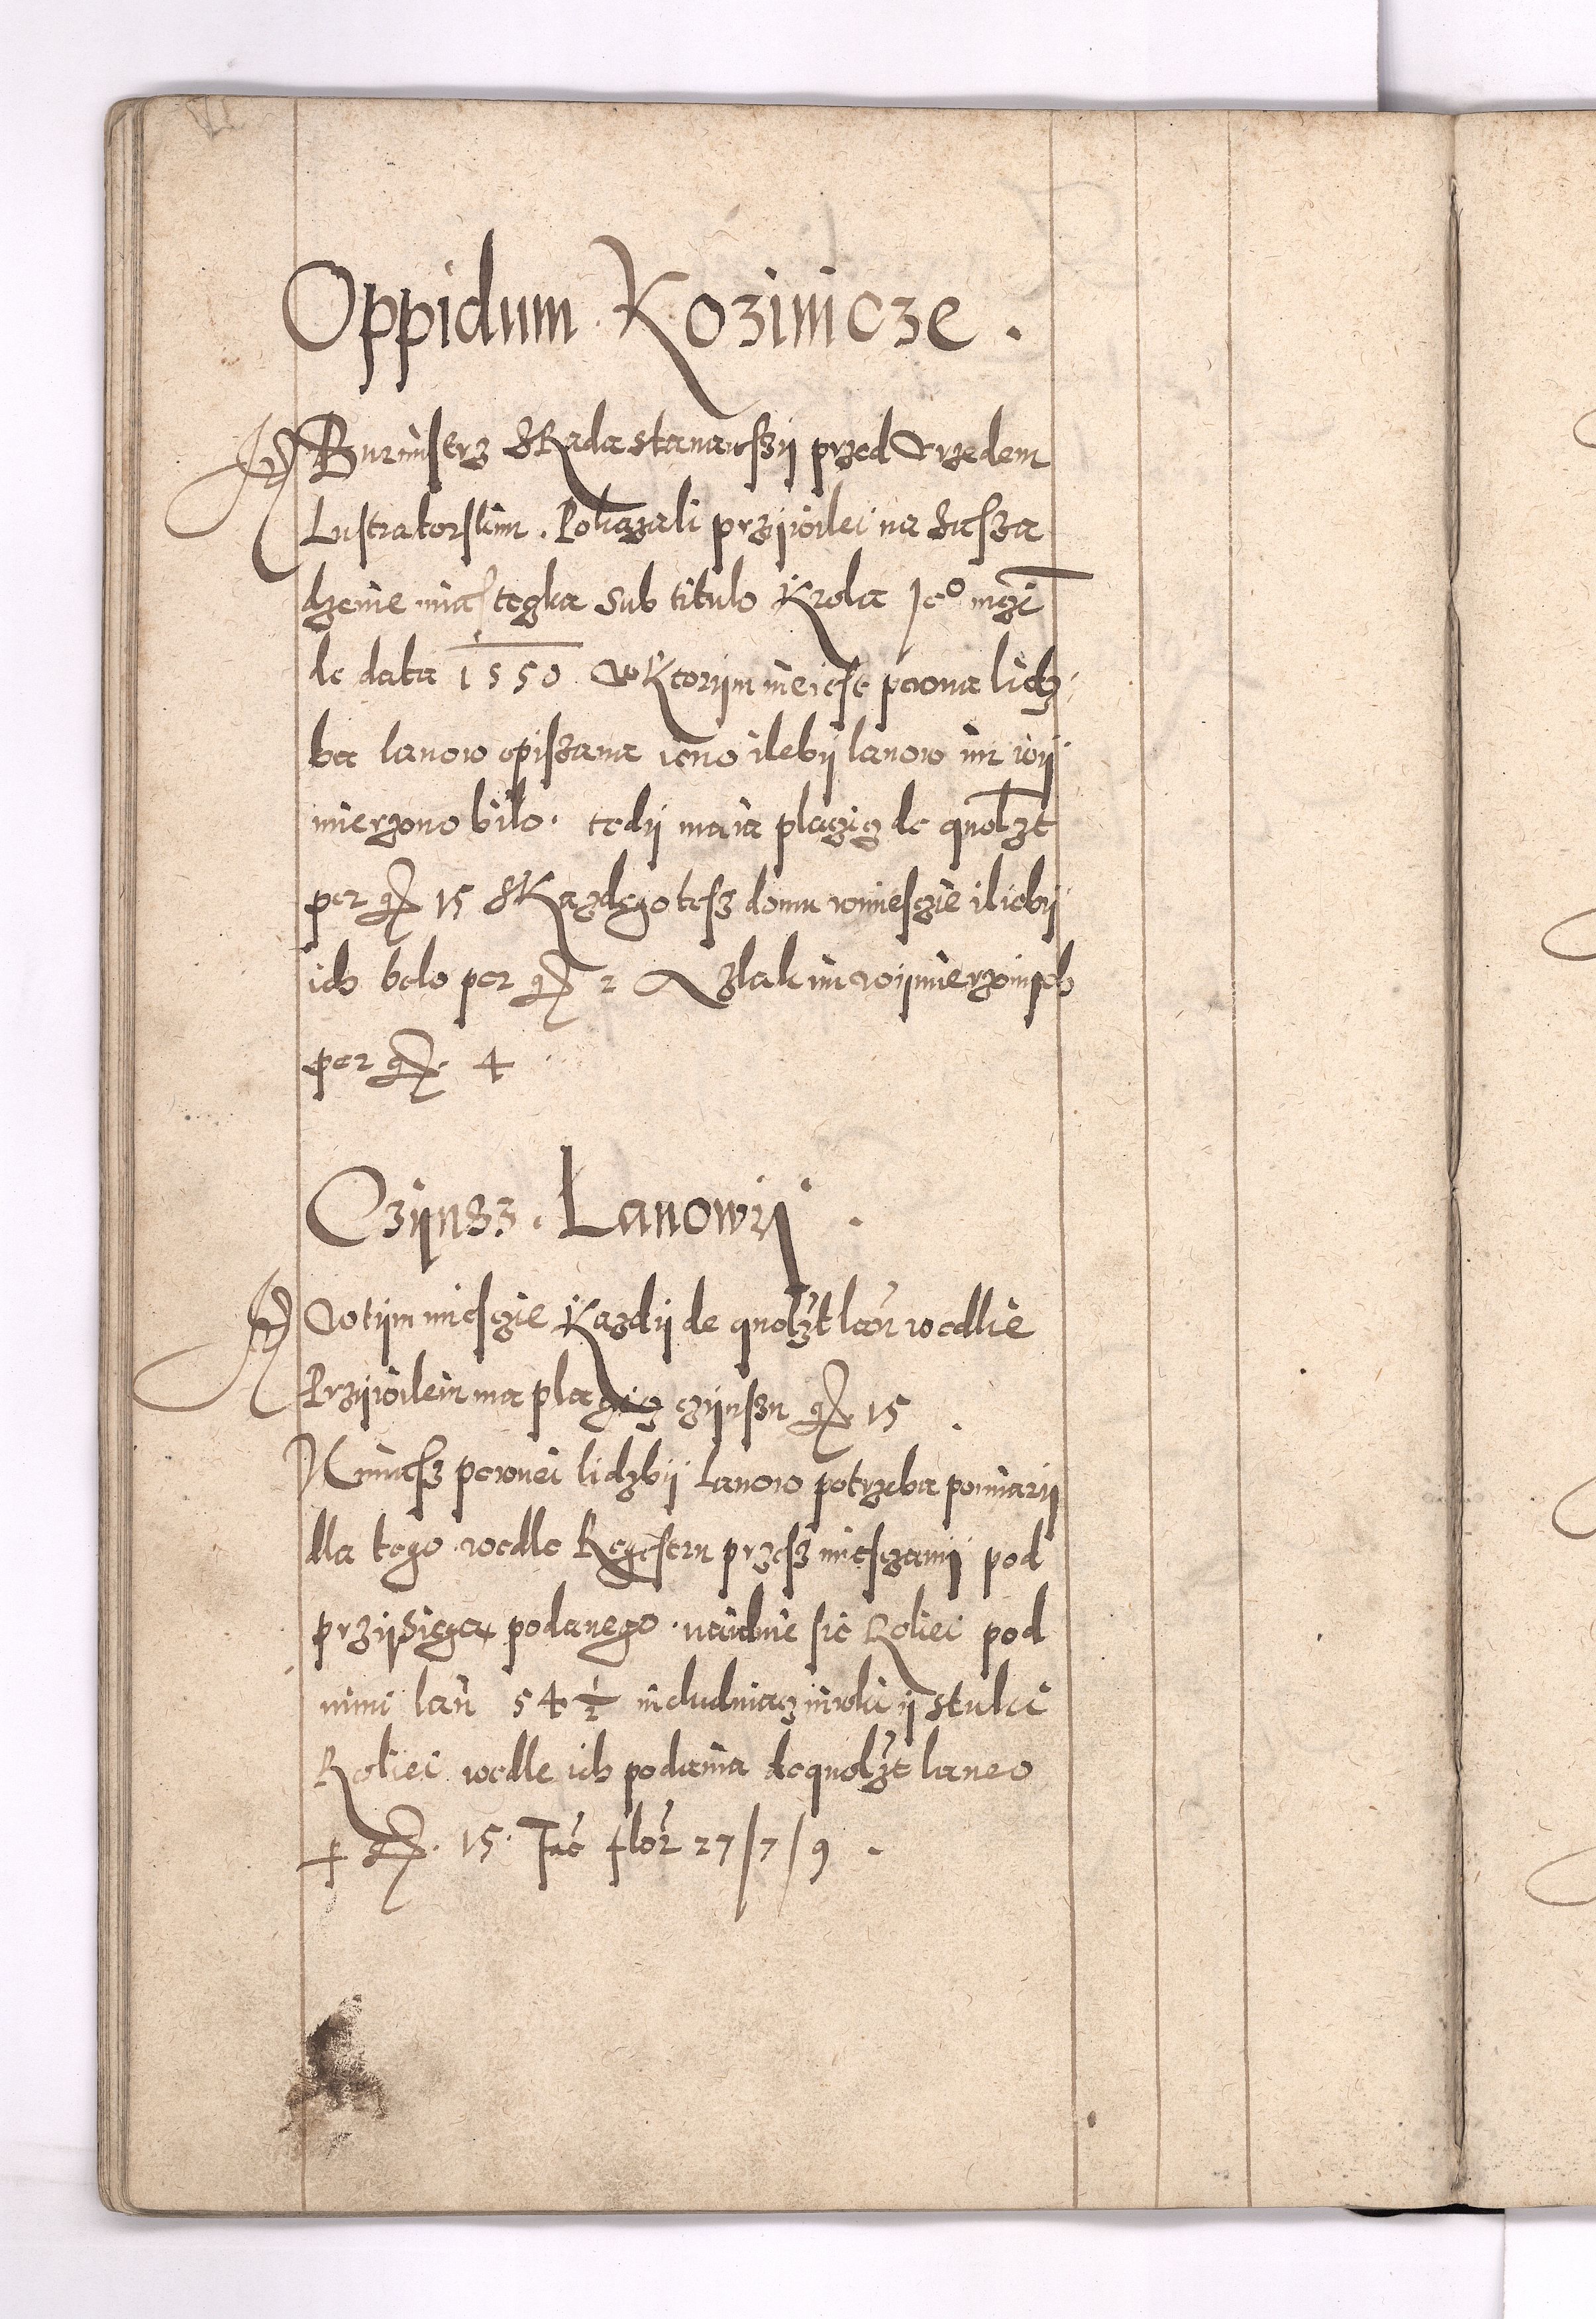 Oppidum Kozinicze.
Burmisterz SRada stanawszÿ przed Vrzedem
Lustratorskim. Pokazali przÿwilei na Sasza
dzenie miastegka Sub titulo Krola Jeº mgi
de data 1550. wKtorÿm nie iest pewna lidz
ba lanow opiszana ieno ilebÿ lanow im wÿ
mierzono bilo. tedÿ maia placzicz de quolzt
per gr 15 SKazdego tesz domu wmiesczie iliebÿ
ich belo per gr 2 A Zlak im wÿmierzonÿch
per gr. 4
Czÿnsz. Lanowÿ.
Wtÿm miesczie Kazdÿ de quolzt lan wedlie
Przÿwileiu ma placzicz czÿnszu gr 15.
Nimasz pewnei lidzbÿ Lanow potrzeba pomiarÿ
dla tego wedle Regestru przesz miesczanÿ pod
przÿsiega podanego. naidzie sie Roliei pod
nimi lan 54 ½ includuiacz niwki ÿ stuki
Roliei wedle ich podania de quolzt laneo
p gr. 15. Fac flor 27/7/9.